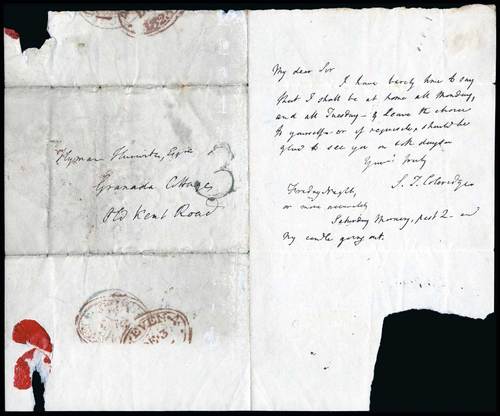 Hyman Hurwitz, Esqre
Granada Cottage
Old Kent Road
3
EVEN
My dear Sir
I have barely time to say
that I shall be at home all Monday,
and all Tuesday — & leave the choice
to yourself — or if requisite, should be
glad to see you on both days
Your's truly
S. T. Coleridge
Friday Night,
or more accurately
Saturday Morning, past 2 — and
my candle going out.